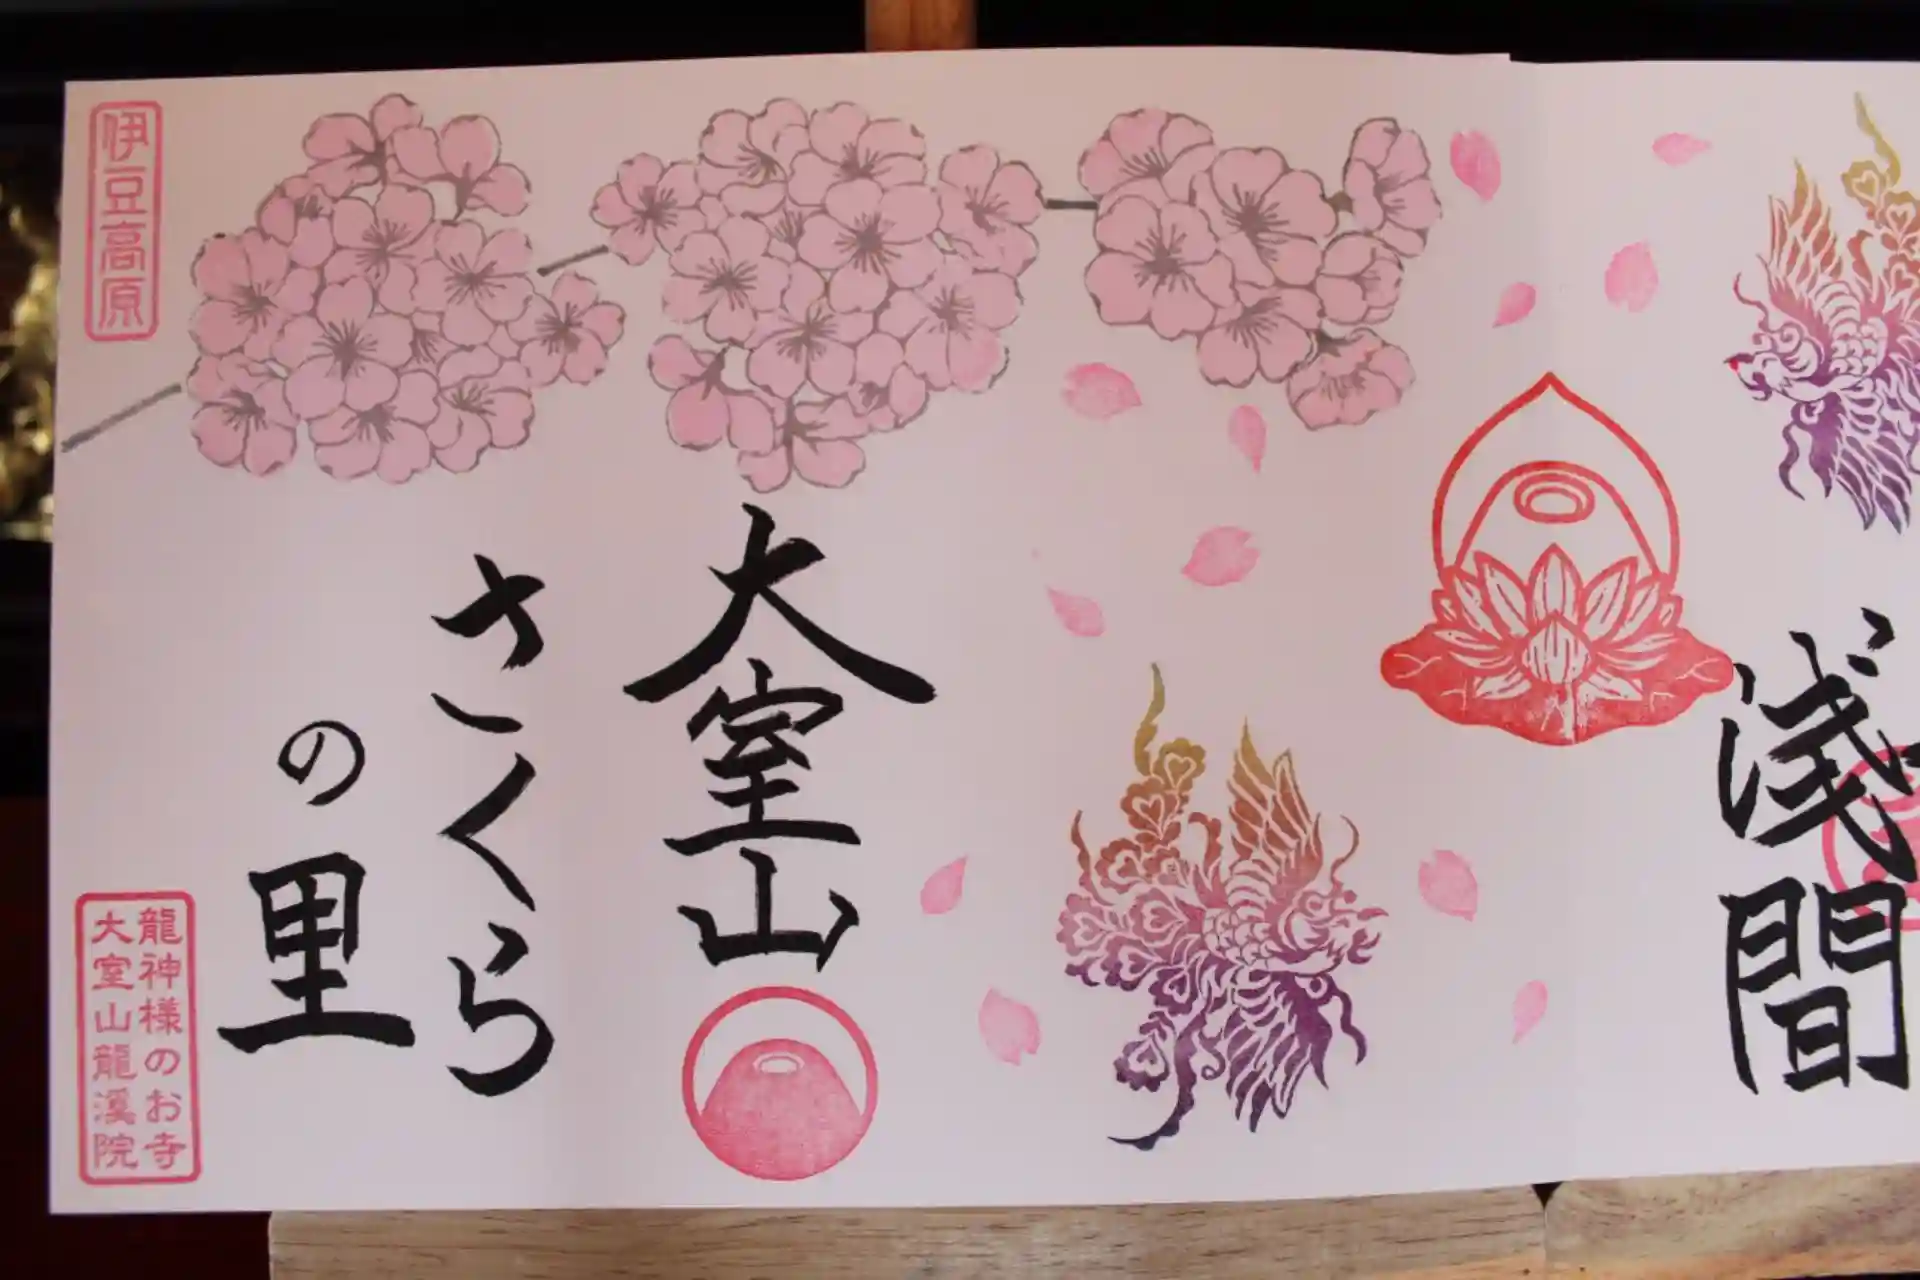 浅間
大室山
さくら
の里
伊豆高原
龍神様のお寺
大室山龍溪院